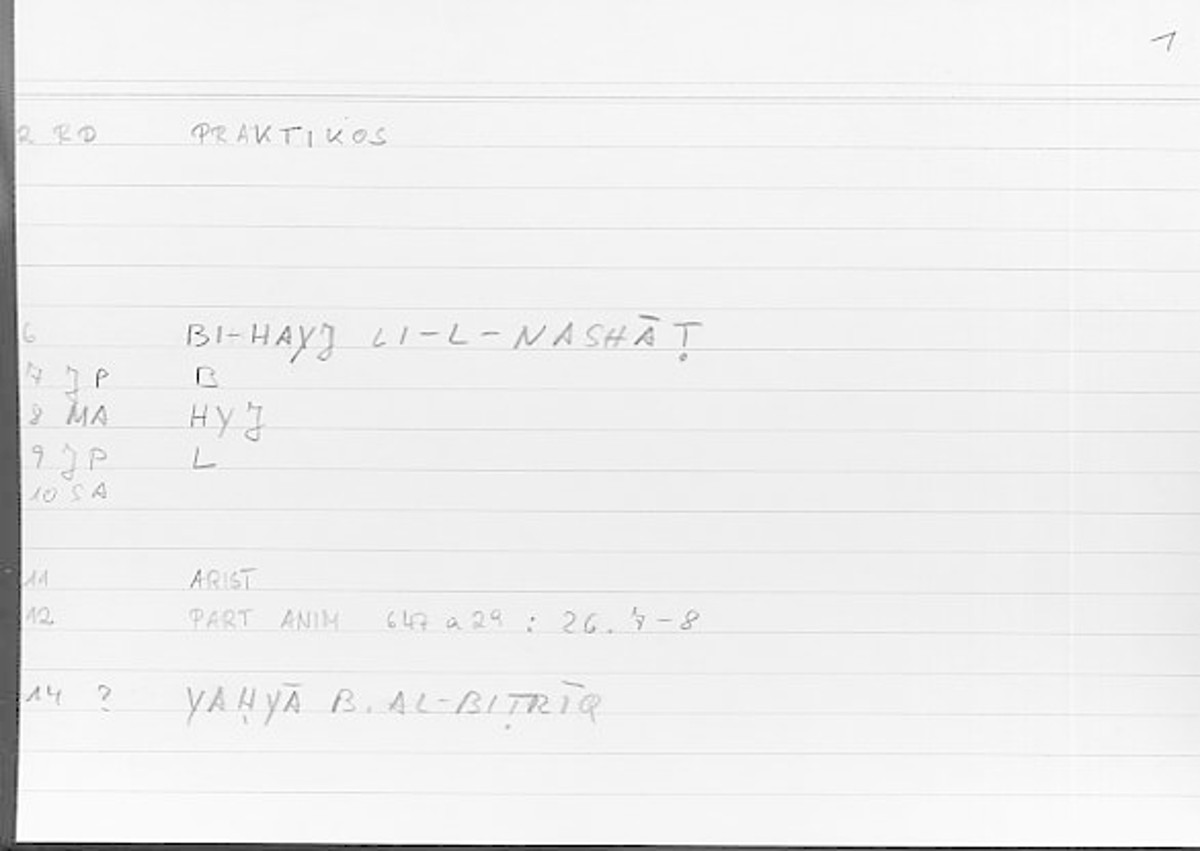 1
2 RD PRAKTIKOS
6 BI-HAYJ LI-L-NASHĀṬ
7 JP B
8 MA HYJ
9 JP L
10 SA
11 ARIST
12 PART ANIM 647 a 29 : 26. 7-8
14 ? YAḤYĀ B. AL-BIṬRĪQ